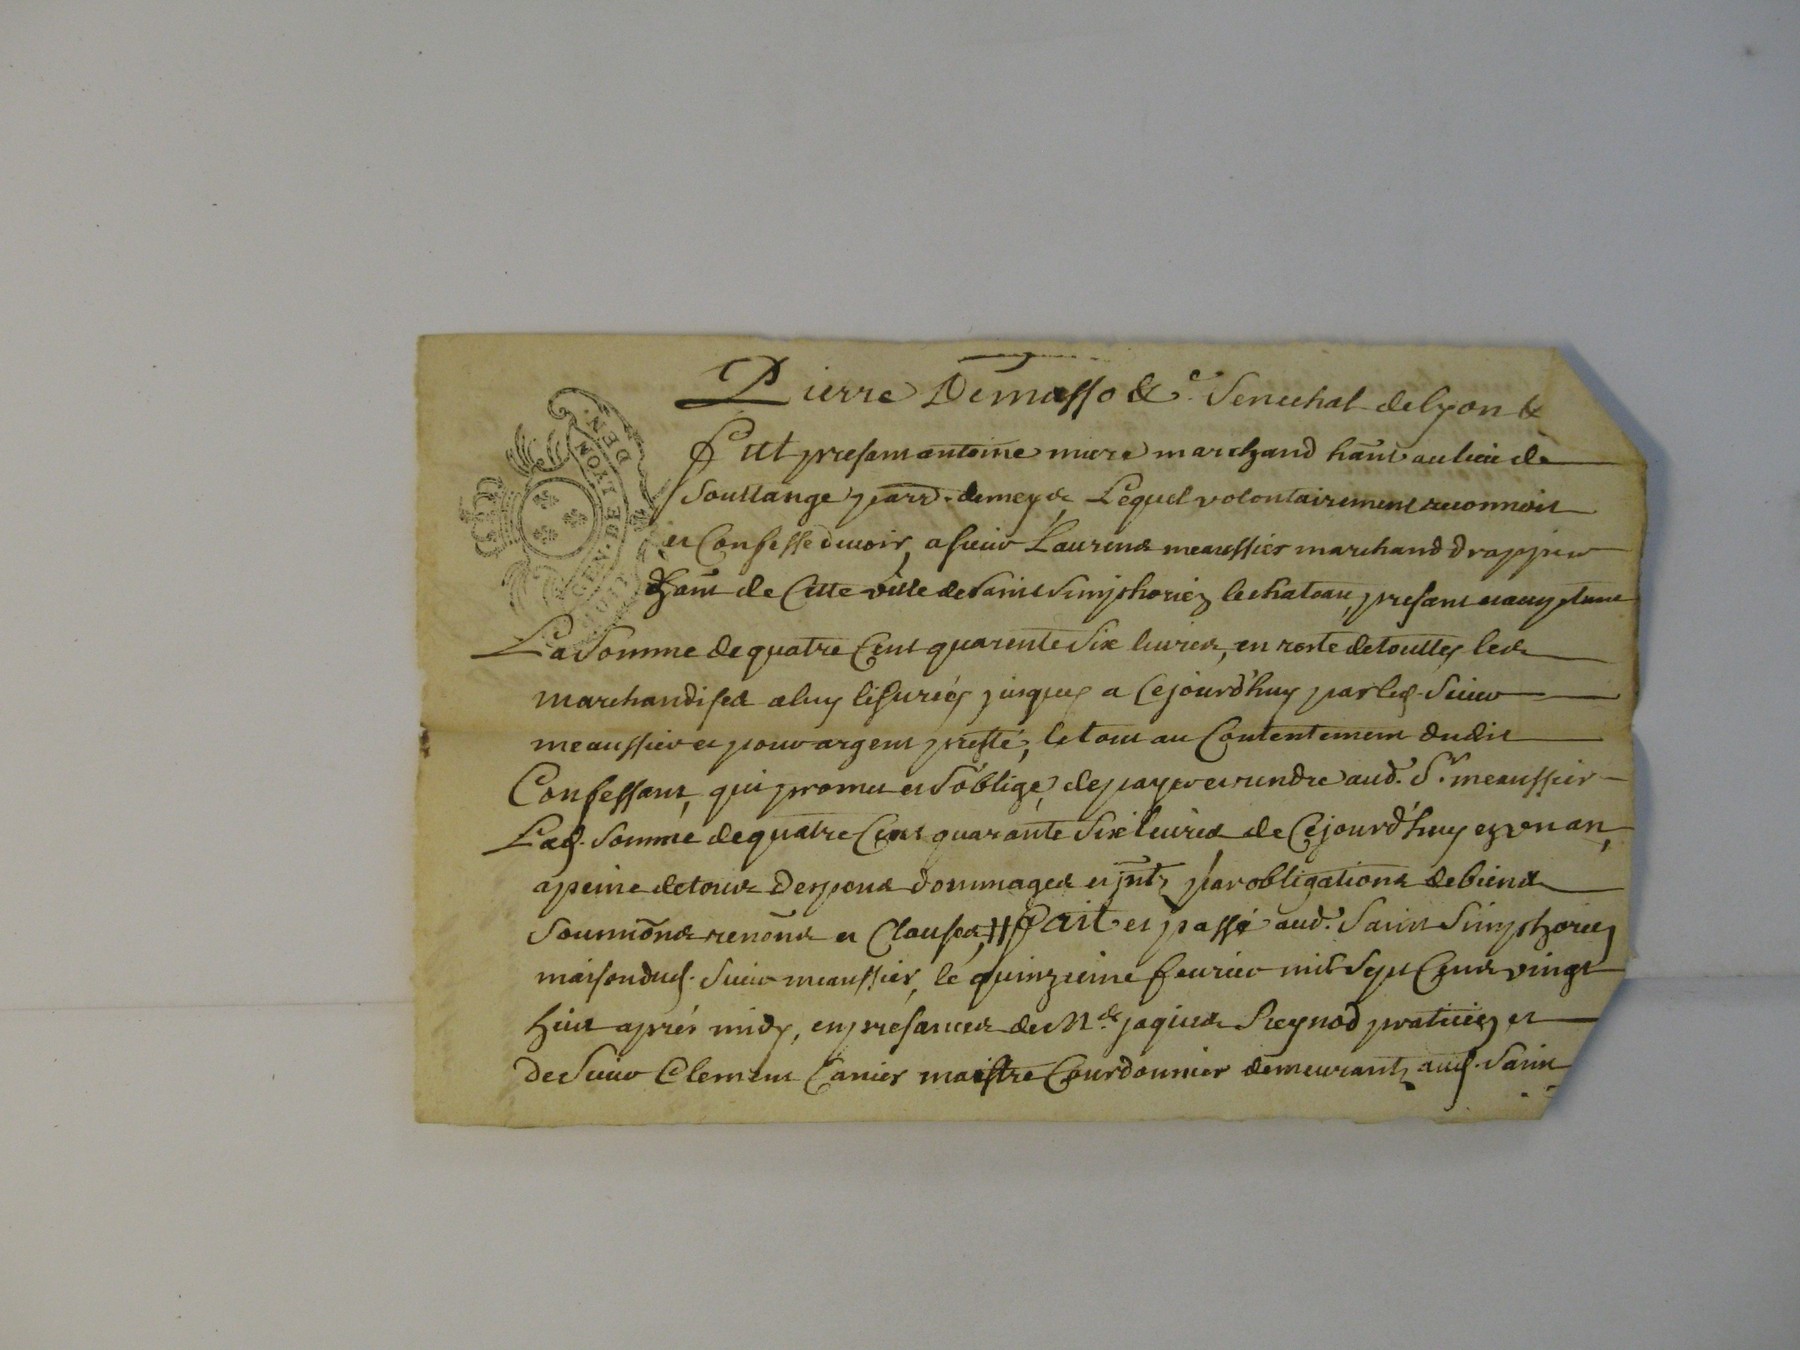 GEN. DE LION
DEN.
Pierre Demasso &c. Senechal de Lyon &
Fut presant antoine mure marchand hant au lieu de
Soullange parr. de meys, Lequel volontairement reconnoit
et Confesse devoir, a sieur Laurens meaussier marchand drappier
hant de Cette ville de Saint Simphorien le chateau, presant et acceptant
La Somme de quatre Cent quarente Six livres, en reste de touttes les
marchandises a luy livrées jusques a Cejourd'huy par led. Sieur
meaussier et pour argent presté, le tout au Contentement dudit
Confessant, qui promet et s'oblige, de payer et rendre aud. Sr. meaussier
Lad. Somme de quatre Cent quarante Six livres de Cejourd'huy en un an,
a peine de tous Despens dommages et jntz par obligations de biens
Soumions renons et Clauses, Fait et passé aud. Saint Simphorien
maison dud. Sieur meaussier, le quinzieme fevrier mil Sept Cens vingt
huit aprés midy, en presances de Me. jaques Reynod praticien et
de Sieur Clement Canier maistre Courdonnier demeurantz aud. Saint